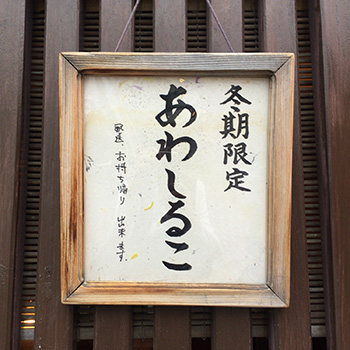 冬期限定
あわしるこ
お持ち帰り 出来ます。